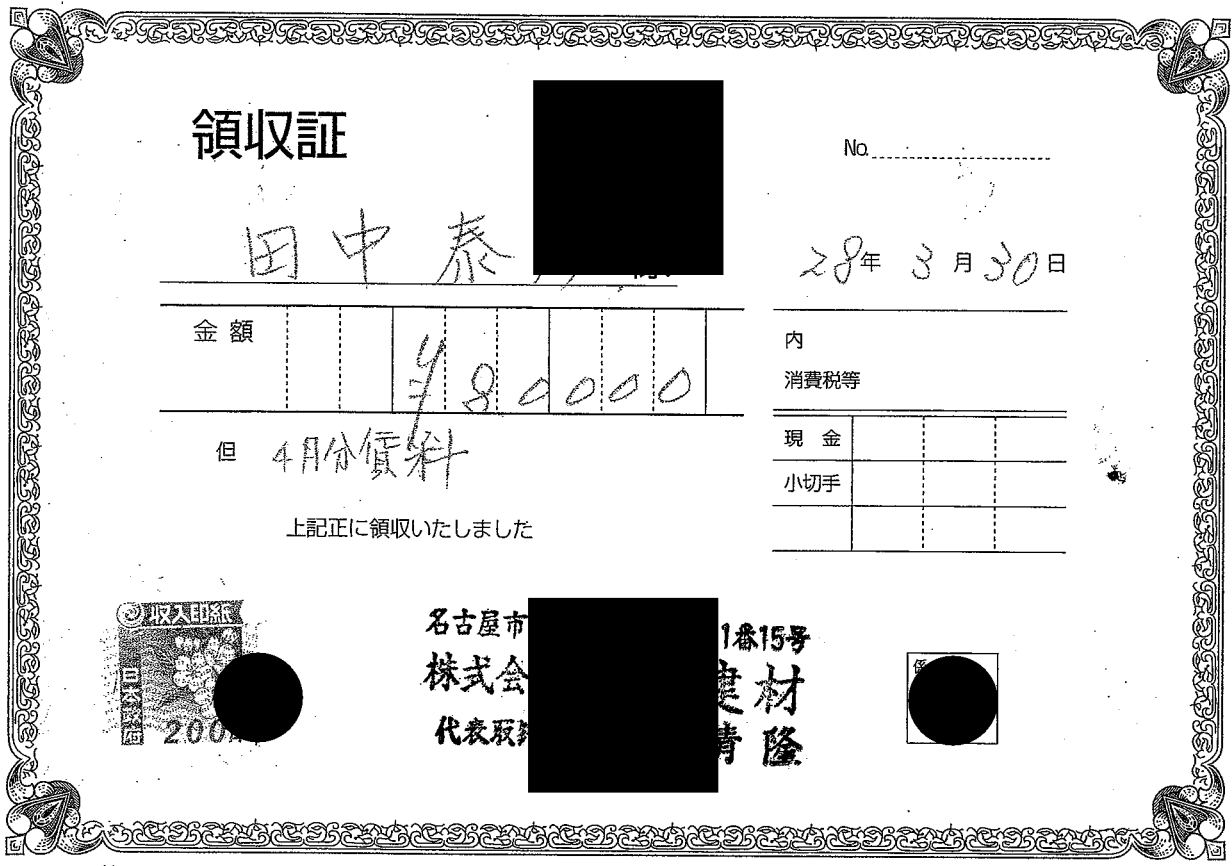 領収証
No.
田中泰
28年 3月30日
金額 ¥80000
内
消費税等
現金
小切手
但 4月分賃料
上記正に領収いたしました
収入印紙
200
名古屋市 1番15号
株式会 建材
代表取締 青隆
係